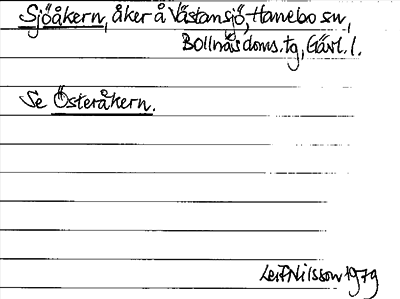 Sjöåkern, åker å Västansjö, Hanebo sn,
Bollnäs doms.tg, Gävl. l.
Se Österåkern.
Leif Nilsson 1979